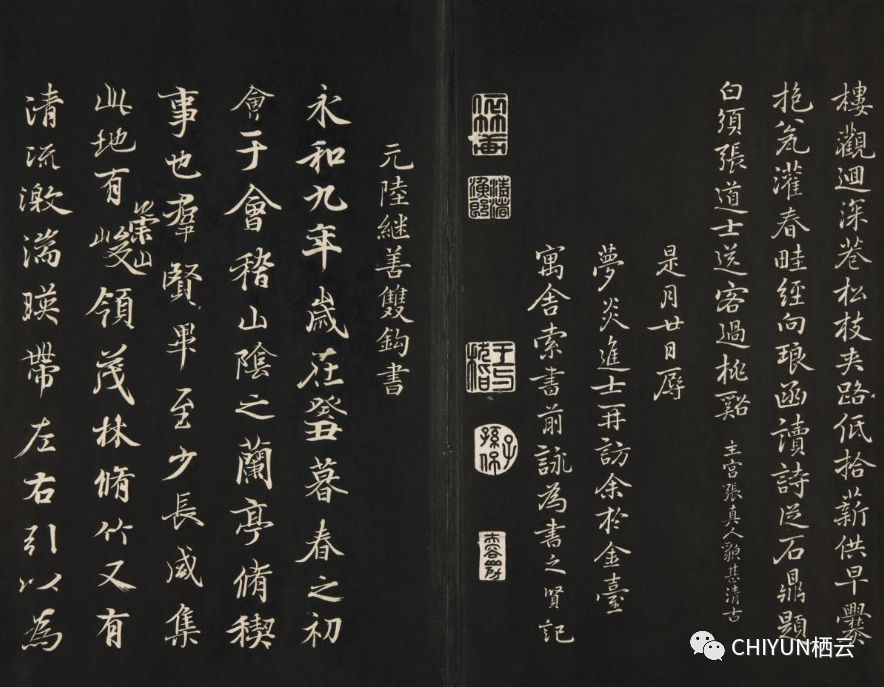 樓觀迴深巷松枝夾路低拾薪供早爨
抱瓮灌春畦經向琅函讀詩從石鼎題
白須張道士送客過桃谿 主宮張真人須甚清古
是月廿日辱
夢炎進士再訪余於金臺
寓舍索書前詠為書之賢記
子孫保
元陸繼善雙鈎書
永和九年歲在癸丑暮春之初
會于會稽山陰之蘭亭脩稧
事也羣賢畢至少長咸集
此地有崇山峻領茂林脩竹又有
清流激湍暎帶左右引以為
CHIYUN栖云